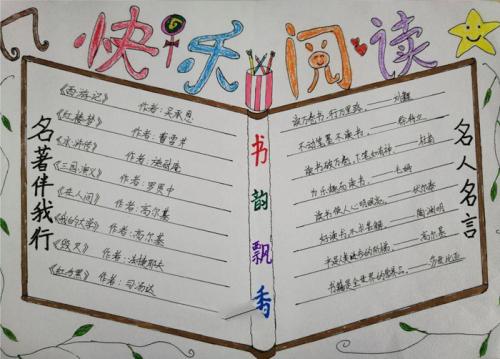 快乐阅读
名著伴我行
《西游记》 作者：吴承恩
《红楼梦》 作者：曹雪芹
《水浒传》 作者：施耐庵
《三国演义》 作者：罗贯中
《在人间》 作者：高尔基
《我的大学》 作者：高尔基
《毁灭》 作者：法捷耶夫
《红与黑》 作者：司汤达
书韵飘香
名人名言
读万卷书，行万里路。——刘彝
不动笔墨不读书。——徐特立
读书破万卷，下笔如有神。——杜甫
为乐趣而读书。——毛姆
读书使人心明眼亮。——伏尔泰
好读书，不求甚解。——陶渊明
书是人类进步的阶梯。——高尔基
书籍是全世界的营养品。——莎士比亚